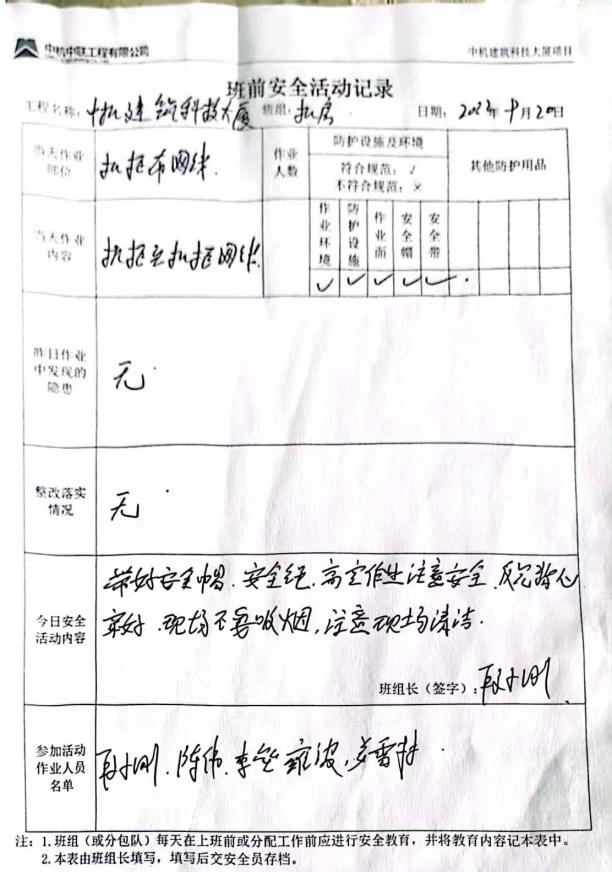 中机中联工程有限公司
中机建筑科技大厦项目
班前安全活动记录
工程名称：中机建筑科技大厦 班组：机房 日期：2023年 月20日
当天作业部位
作业人数
防护设施及环境
符合规范：✓
不符合规范：×
其他防护用品
当天作业内容
作业环境 防护设施 作业面 安全帽 安全带
✓ ✓ ✓ ✓ ✓
昨日作业中发现的隐患
无
整改落实情况
无
今日安全活动内容
带好安全帽、安全绳、高空作业注意安全、反光背心
穿好、现场不要吸烟，注意现场清洁.
班组长（签字）：
参加活动作业人员名单
陈伟
注：1.班组（或分包队）每天在上班前或分配工作前应进行安全教育，并将教育内容记本表中。
2.本表由班组长填写，填写后交安全员存档。